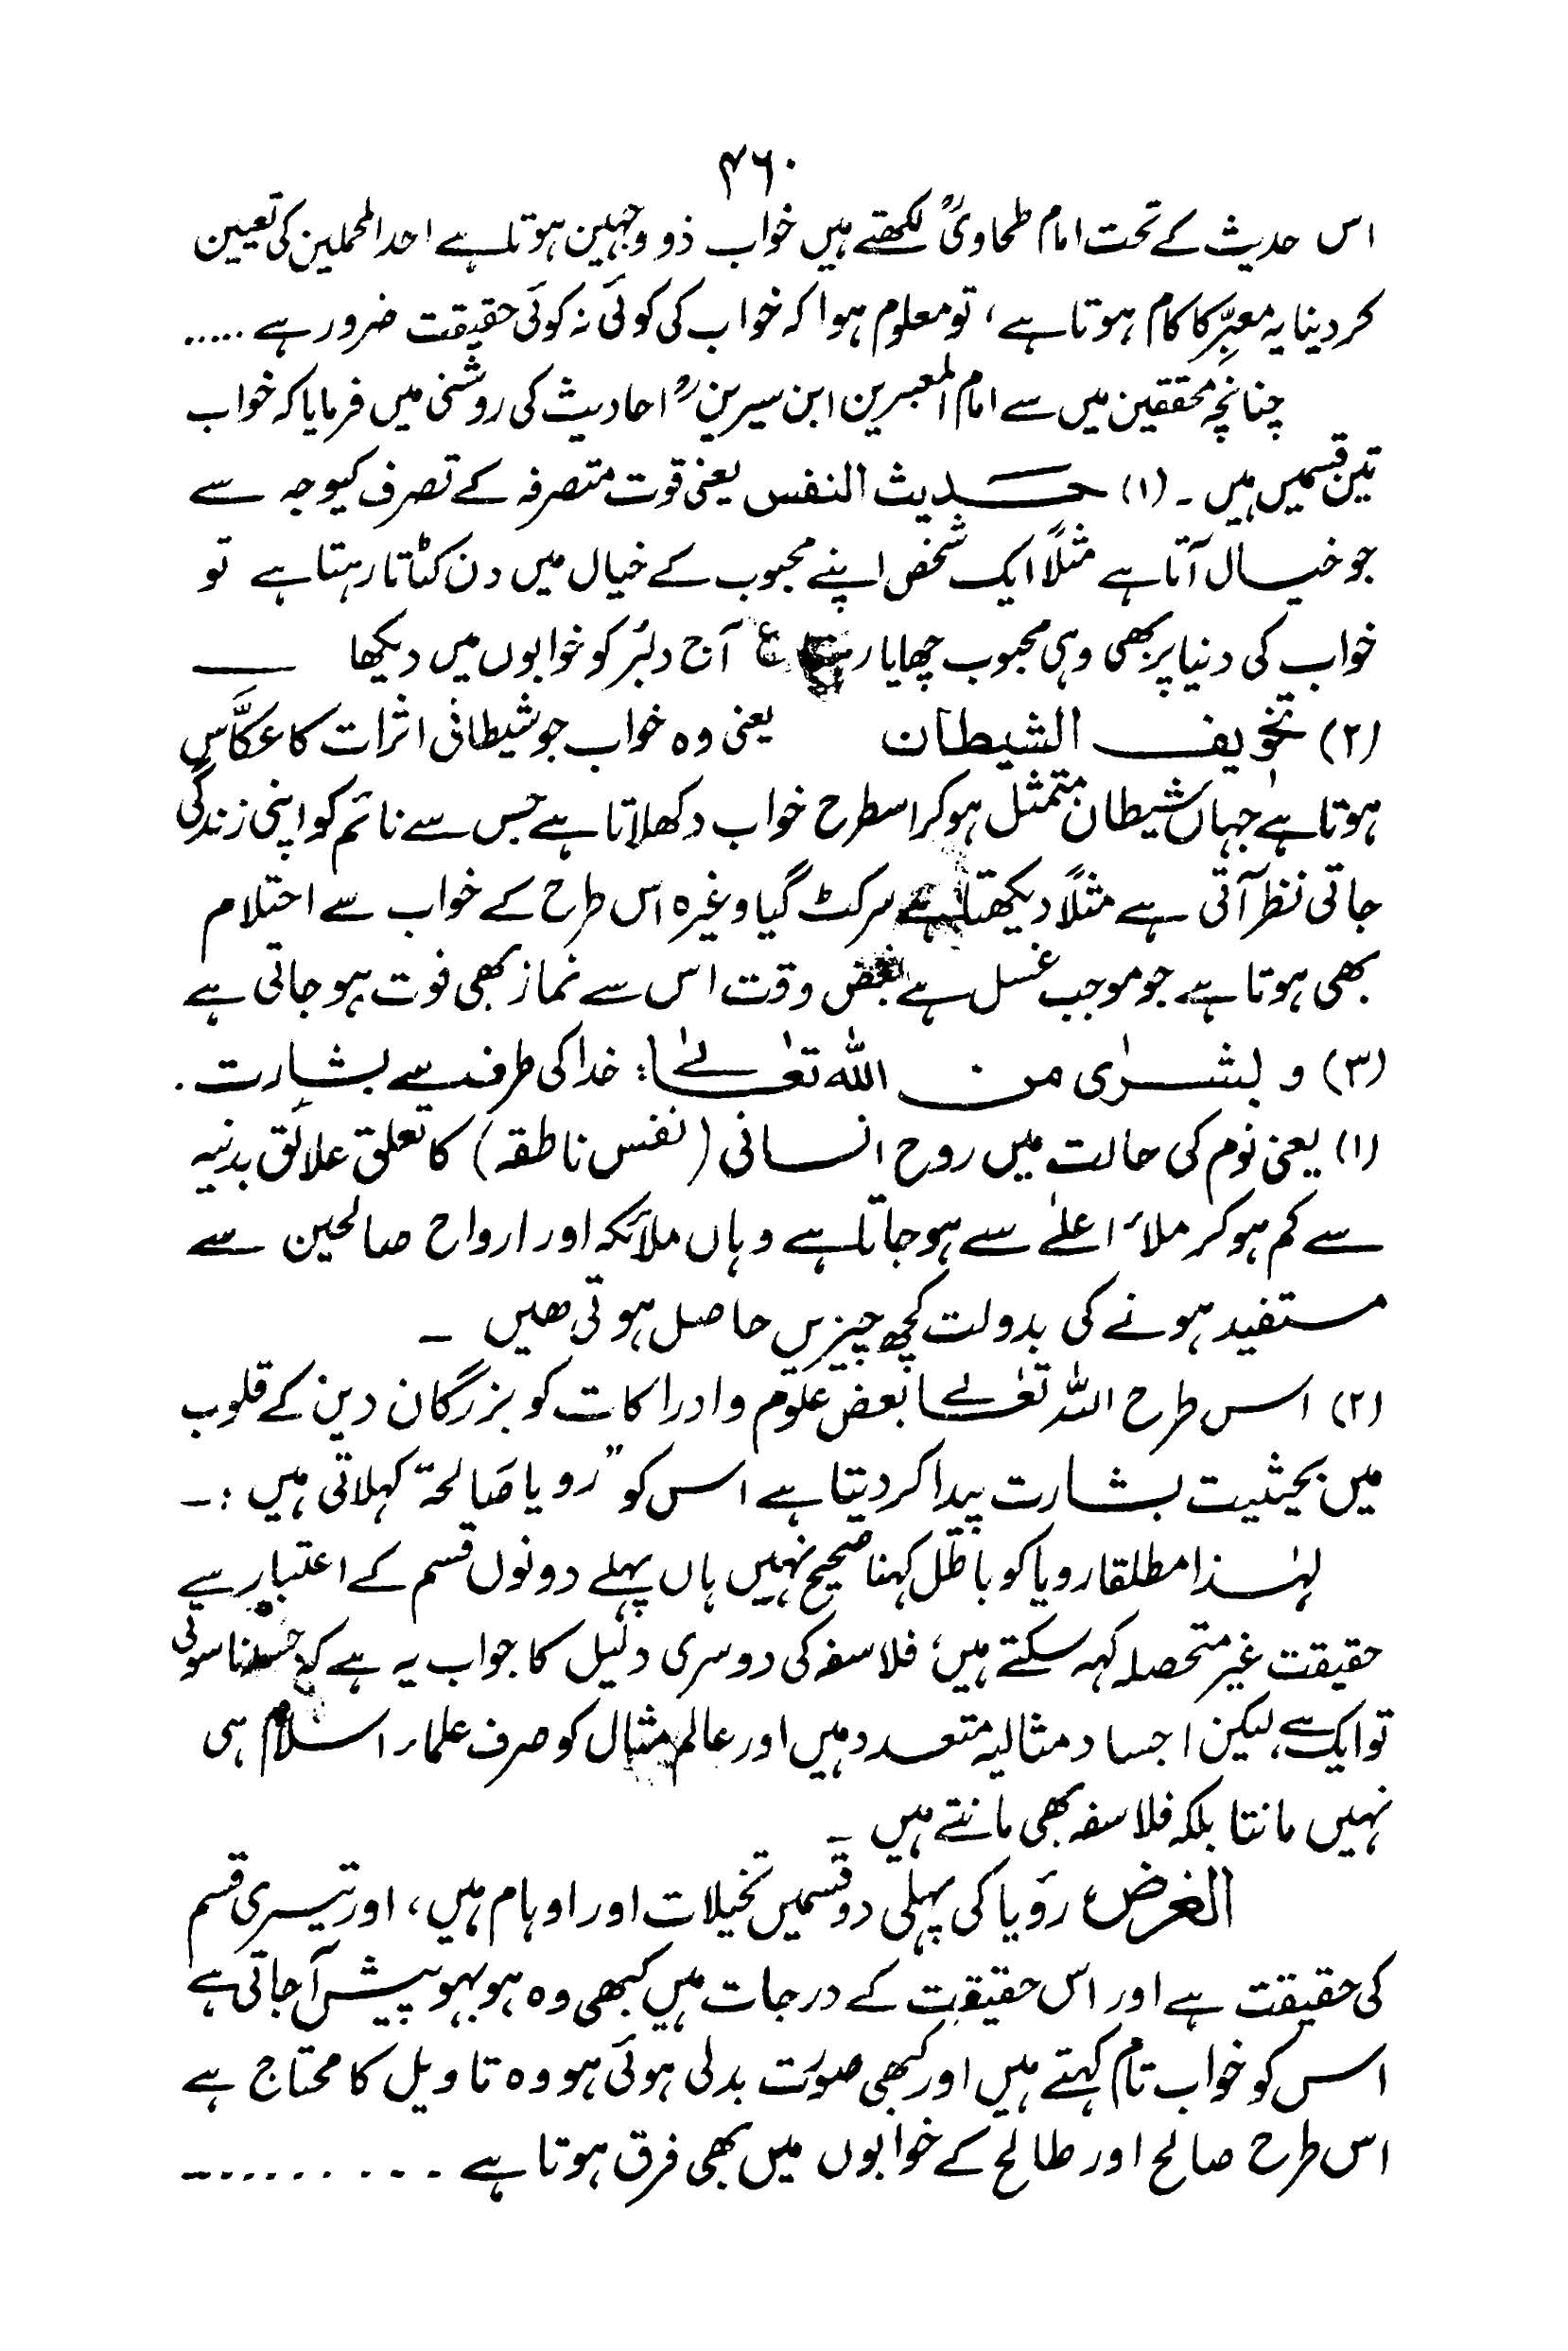 ۴۶۰
اس حدیث کے تحت امام طحاویؒ لکھتے ہیں خواب ذو وجہین ہوتا ہے احد المحملین کی تعیین
کردینا یہ معبِّر کا کام ہوتا ہے، تو معلوم ہوا کہ خواب کی کوئی نہ کوئی حقیقت ضرور ہے .....
چنانچہ محققین میں سے امام المعبرین ابن سیرینؒ احادیث کی روشنی میں فرمایا کہ خواب
تین قسمیں ہیں ۔ (۱) حدیث النفس یعنی قوت متصرفہ کے تصرف کیوجہ سے
جو خیال آتا ہے مثلاً ایک شخص اپنے محبوب کے خیال میں دن کٹاتا رہتا ہے تو
خواب کی دنیا پر بھی وہی محبوب چھایا ع آج دلبر کو خوابوں میں دیکھا ـــ
(۲) تخویف الشیطان یعنی وہ خواب جو شیطانی اثرات کا عکّاس
ہوتا ہے جہاں شیطان متمثل ہوکر اسطرح خواب دکھلاتا ہے جس سے نائم کو اپنی زندگی
جاتی نظر آتی ہے مثلاً دیکھتا ہے سر کٹ گیا وغیرہ اس طرح کے خواب سے احتلام
بھی ہوتا ہے جو موجب غسل ہے بعض وقت اس سے نماز بھی فوت ہو جاتی ہے
(۳) و بشرٰی من اللہ تعٰالےٰ : خدا کی طرف سے بشارت .
(۱) یعنی نوم کی حالت میں روح انسانی (نفس ناطقہ) کا تعلق علائق بدنیہ
سے کم ہوکر ملاء اعلےٰ سے ہو جاتا ہے وہاں ملائکہ اور ارواح صالحین سے
مستفید ہونے کی بدولت کچھ چیزیں حاصل ہوتی ھیں ۔
(۲) اس طرح اللہ تعٰالےٰ بعض علوم و ادراکات کو بزرگان دین کے قلوب
میں بحیثیت بشارت پیدا کردیتا ہے اس کو ” رویا صَالحۃ کہلاتی ہیں :۔
لہٰذا مطلقا رویا کو باطل کہنا صحیح نہیں ہاں پہلے دونوں قسم کے اعتبار سے
حقیقت غیر متحصلہ کہہ سکتے ہیں؛ فلاسفہ کی دوسری دلیل کا جواب یہ ہے کہ ناسوتی
تو ایک ہے لیکن اجساد مثالیہ متعدد ہیں اور عالم مثال کو صرف علماء اسلام ہی
نہیں مانتا بلکہ فلاسفہ بھی مانتے ہیں ۔
الغرض رؤیا کی پہلی دو قسمیں تخیلات اور اوہام ہیں، اور تیسری قسم
کی حقیقت ہے اور اس حقیقت کے درجات ہیں کبھی وہ ہو بہو پیش آجاتی ہے
اس کو خواب تام کہتے ہیں اور کبھی صورت بدلی ہوئی ہو وہ تاویل کا محتاج ہے
اس طرح صالح اور طالح کے خوابوں میں بھی فرق ہوتا ہے ..........